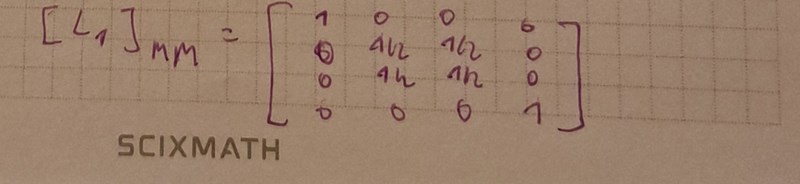 [L₁]MM = [1 0 0 0
0 1/2 1/2 0
0 1/2 1/2 0
0 0 0 1]
SCIXMATH